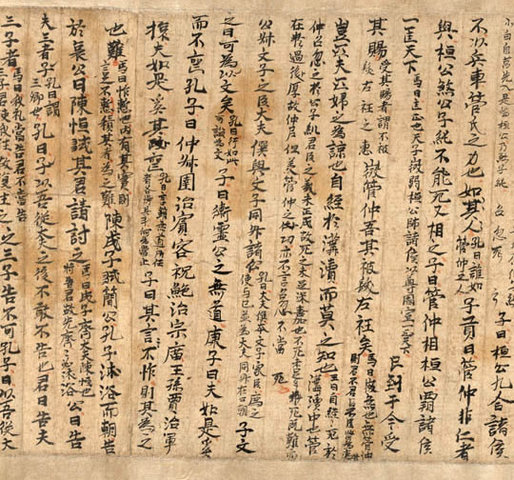 小白自莒先入是爲桓公乃殺子 召忽死 子曰桓公九合諸侯
不以兵車管仲之力也如其人 孔曰誰如管仲之人 子貢曰管仲非仁者
與桓公煞公子糾不能死又相之子曰管仲相桓公霸諸侯
一匡天下 馬曰匡正也天子微弱桓公師諸侯以尊周室一正天下 民到于今受
其賜 受其賜者謂不被髮左衽之惠 微管仲吾其被髮左衽矣 馬曰微無也無管仲則君不君臣不臣皆爲夷狄
豈若匹夫匹婦之爲諒也自經於溝瀆而莫之知也 王曰自經經死於溝瀆中也管
仲召忽之於公子糾君臣之義未正成故死之未足深嘉不死未足多非死既難
在於過厚故仲尼但美管仲之功亦不言召忽不當死
公叔文子之臣大夫僎與文子同升諸公 孔曰大夫僎本文子家臣薦之使与己並爲大夫同升在公朝 子文
之曰可以爲文矣 孔曰行如此可謚爲文 子曰衛靈公之無道康子曰夫如是奚
而不喪孔子曰仲叔圉治賓客祝鮀治宗廟王孫賈治軍
旅夫如是奚其喪 孔曰言雖無道所任者各當其才何爲當亡 子曰其言不怍則其爲之
也難 馬曰怍慙也内有其實則言之不慙積其實者爲之難 陳成子弑簡公孔子沐浴而朝告
於哀公曰陳恒弑其君請討之 馬曰成子齊大夫陳恒也將告君故先齋齋必沐浴 公曰告
夫三子 孔曰謂三卿也 孔子曰以吾從大夫之後不敢不告也君曰告夫
三子者 馬曰我礼當告君不當告三子君使我往故復往 之三子告不可孔子曰以吾從大